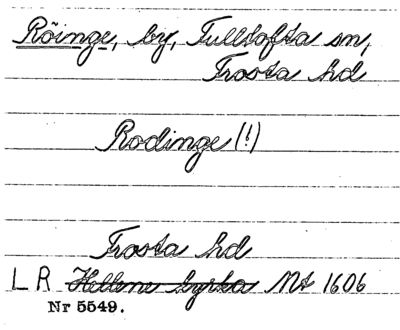 Röinge, by, Fulltofta sn,
Frosta hd
Rodinge (!)
Frosta hd
LR Hellene kyrka Mt 1606
Nr 5549.